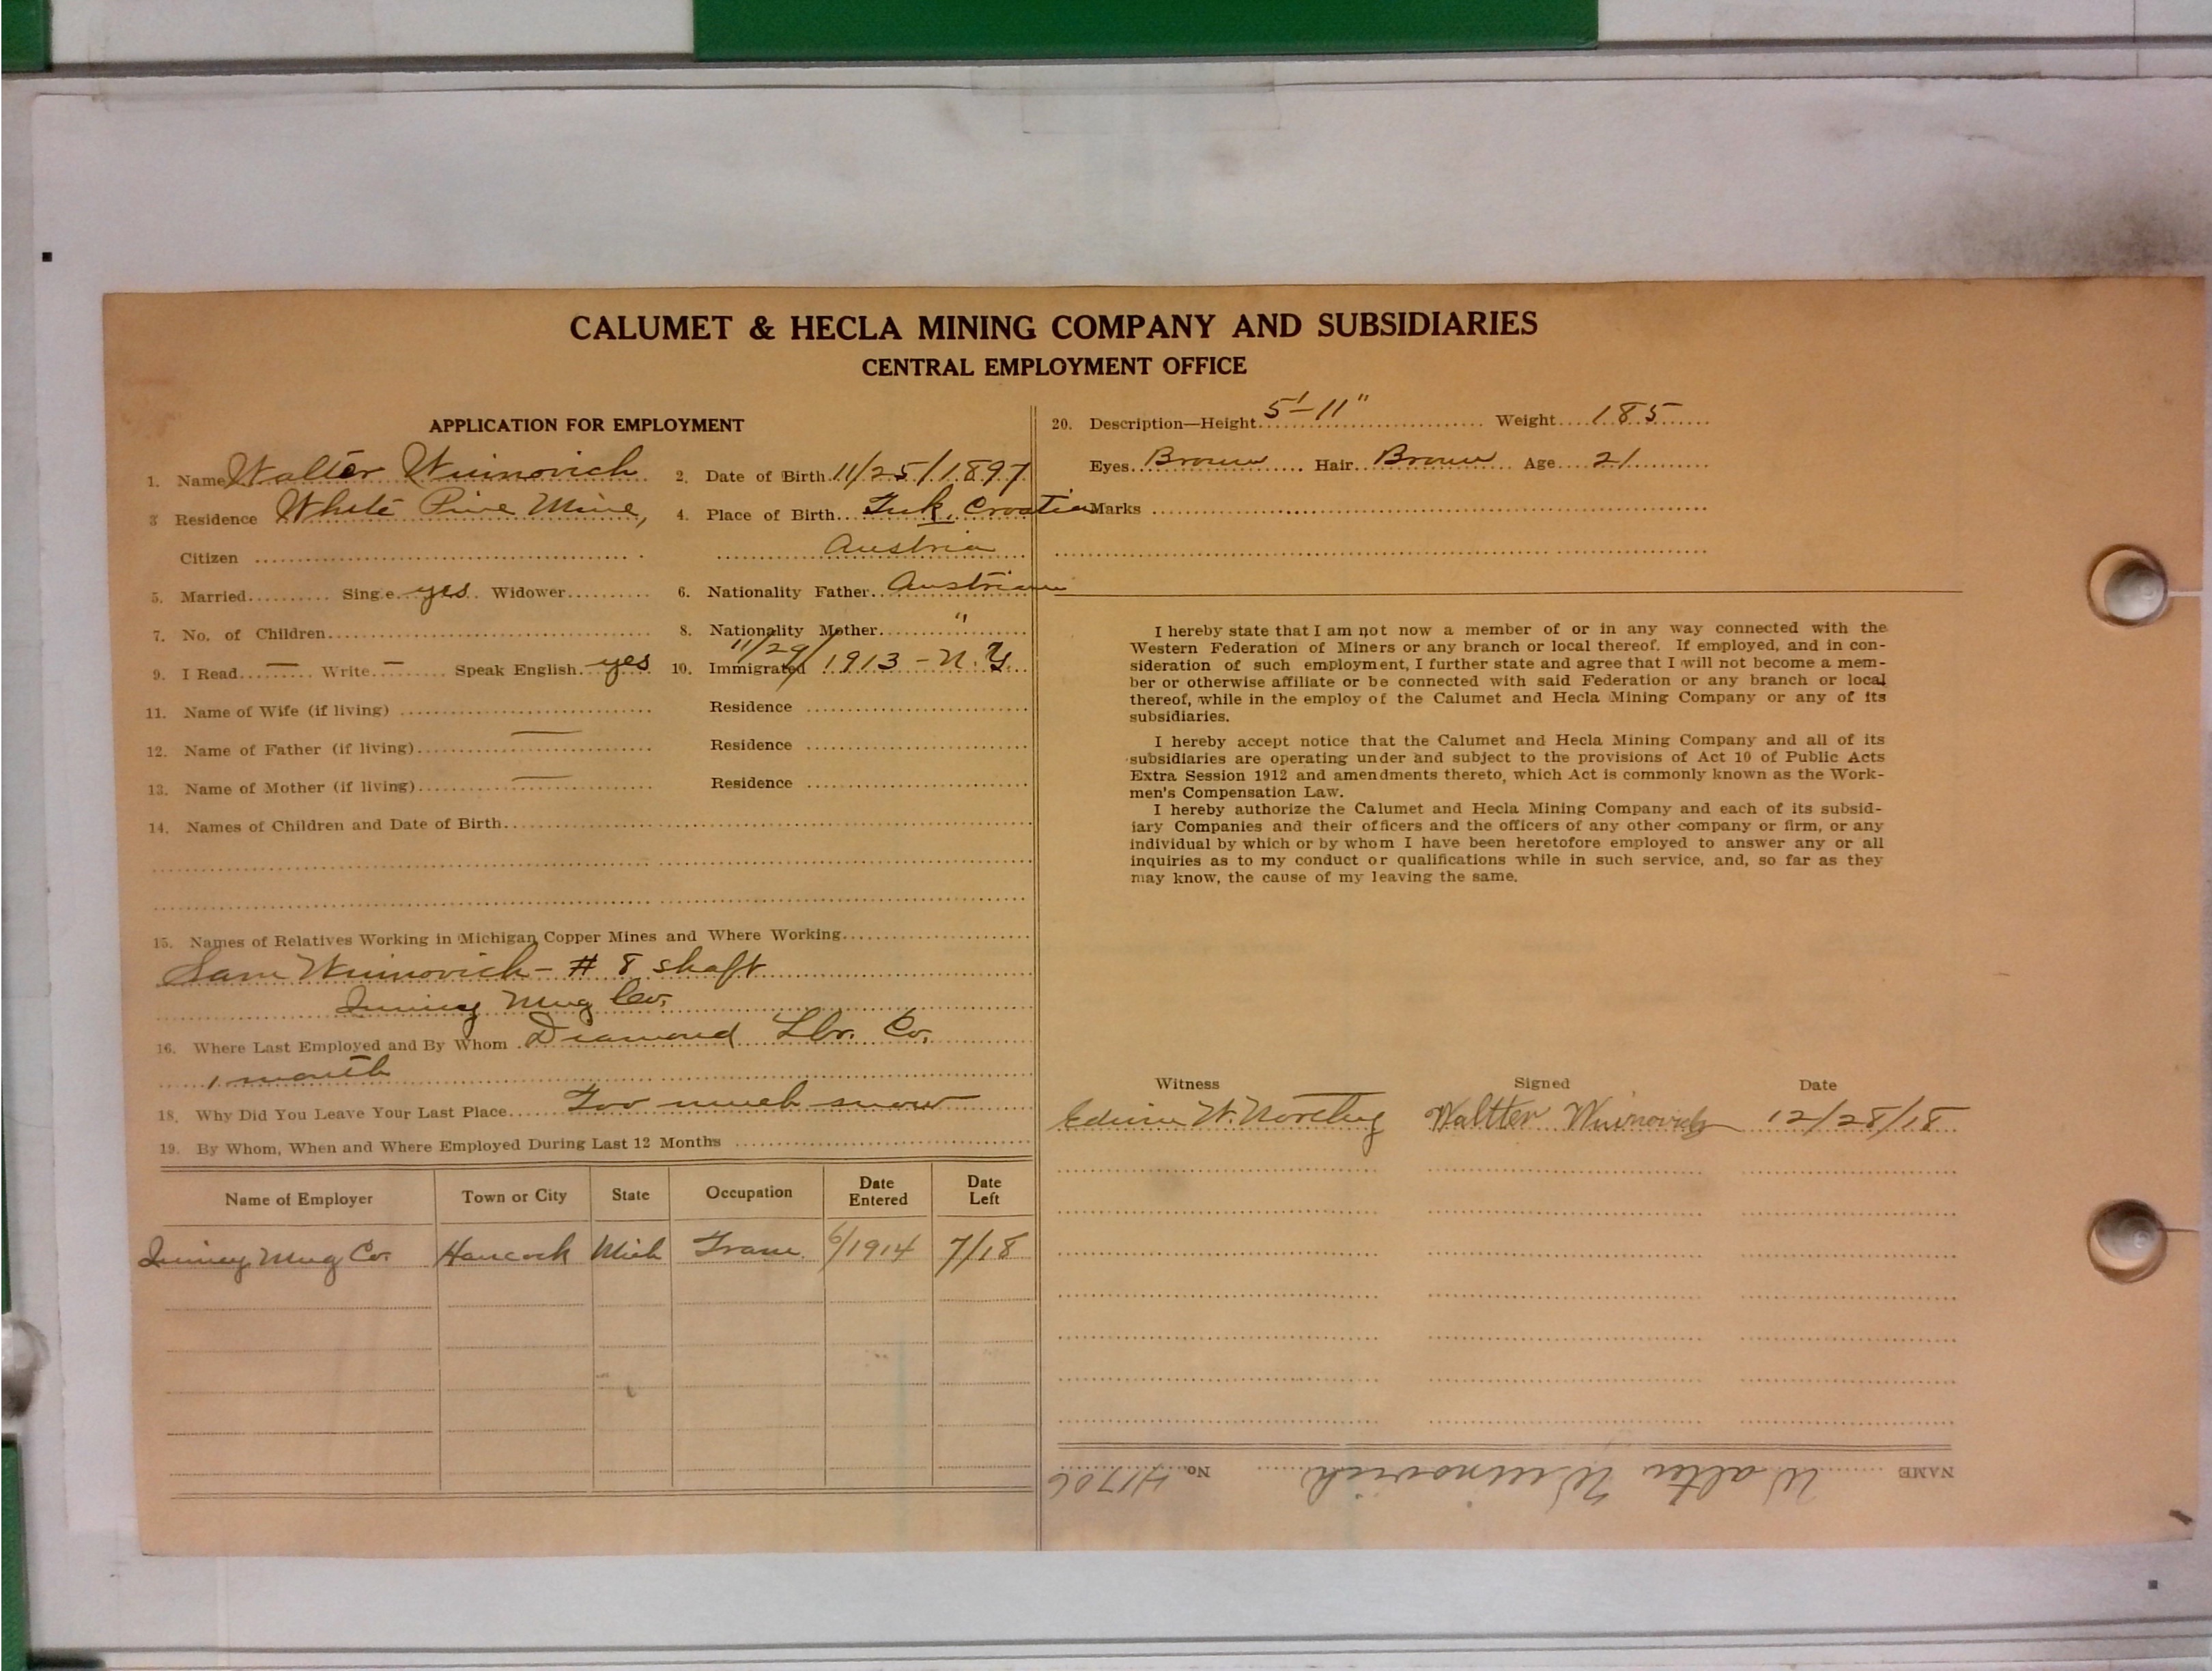 CALUMET & HECLA MINING COMPANY AND SUBSIDIARIES
CENTRAL EMPLOYMENT OFFICE
APPLICATION FOR EMPLOYMENT
1. Name Walter Wuinovich 2. Date of Birth 11/25/1897
3 Residence White Pine Mine, 4. Place of Birth Croatia
Citizen Austria
5. Married Sing e. yes Widower 6. Nationality Father Austrian
7. No. of Children 8. Nationality Mother "
9. I Read — Write — Speak English yes 10. Immigrated 11/29/1913 - N.Y.
11. Name of Wife (if living) Residence
12. Name of Father (if living) — Residence
13. Name of Mother (if living) — Residence
14. Names of Children and Date of Birth
15. Names of Relatives Working in Michigan Copper Mines and Where Working
Sam Wuinovich - # 8 shaft
Quincy Mng Co.
16. Where Last Employed and By Whom Diamond Lbr. Co.
1 month
18. Why Did You Leave Your Last Place Too much snow
19. By Whom, When and Where Employed During Last 12 Months
Name of Employer Town or City State Occupation Date Entered Date Left
Quincy Mng Co. Hancock Mich Tram 6/1914 7/18
20. Description—Height 5'-11" Weight 185
Eyes Brown Hair Brown Age 21
Marks
I hereby state that I am not now a member of or in any way connected with the
Western Federation of Miners or any branch or local thereof. If employed, and in con-
sideration of such employment, I further state and agree that I will not become a mem-
ber or otherwise affiliate or be connected with said Federation or any branch or local
thereof, while in the employ of the Calumet and Hecla Mining Company or any of its
subsidiaries.
I hereby accept notice that the Calumet and Hecla Mining Company and all of its
subsidiaries are operating under and subject to the provisions of Act 10 of Public Acts
Extra Session 1912 and amendments thereto, which Act is commonly known as the Work-
men's Compensation Law.
I hereby authorize the Calumet and Hecla Mining Company and each of its subsid-
iary Companies and their officers and the officers of any other company or firm, or any
individual by which or by whom I have been heretofore employed to answer any or all
inquiries as to my conduct or qualifications while in such service, and, so far as they
may know, the cause of my leaving the same.
Witness Signed Date
Edwin W. Northey Waltter Wuinovich 12/28/18
NAME Walter Wuinovich No. 41706